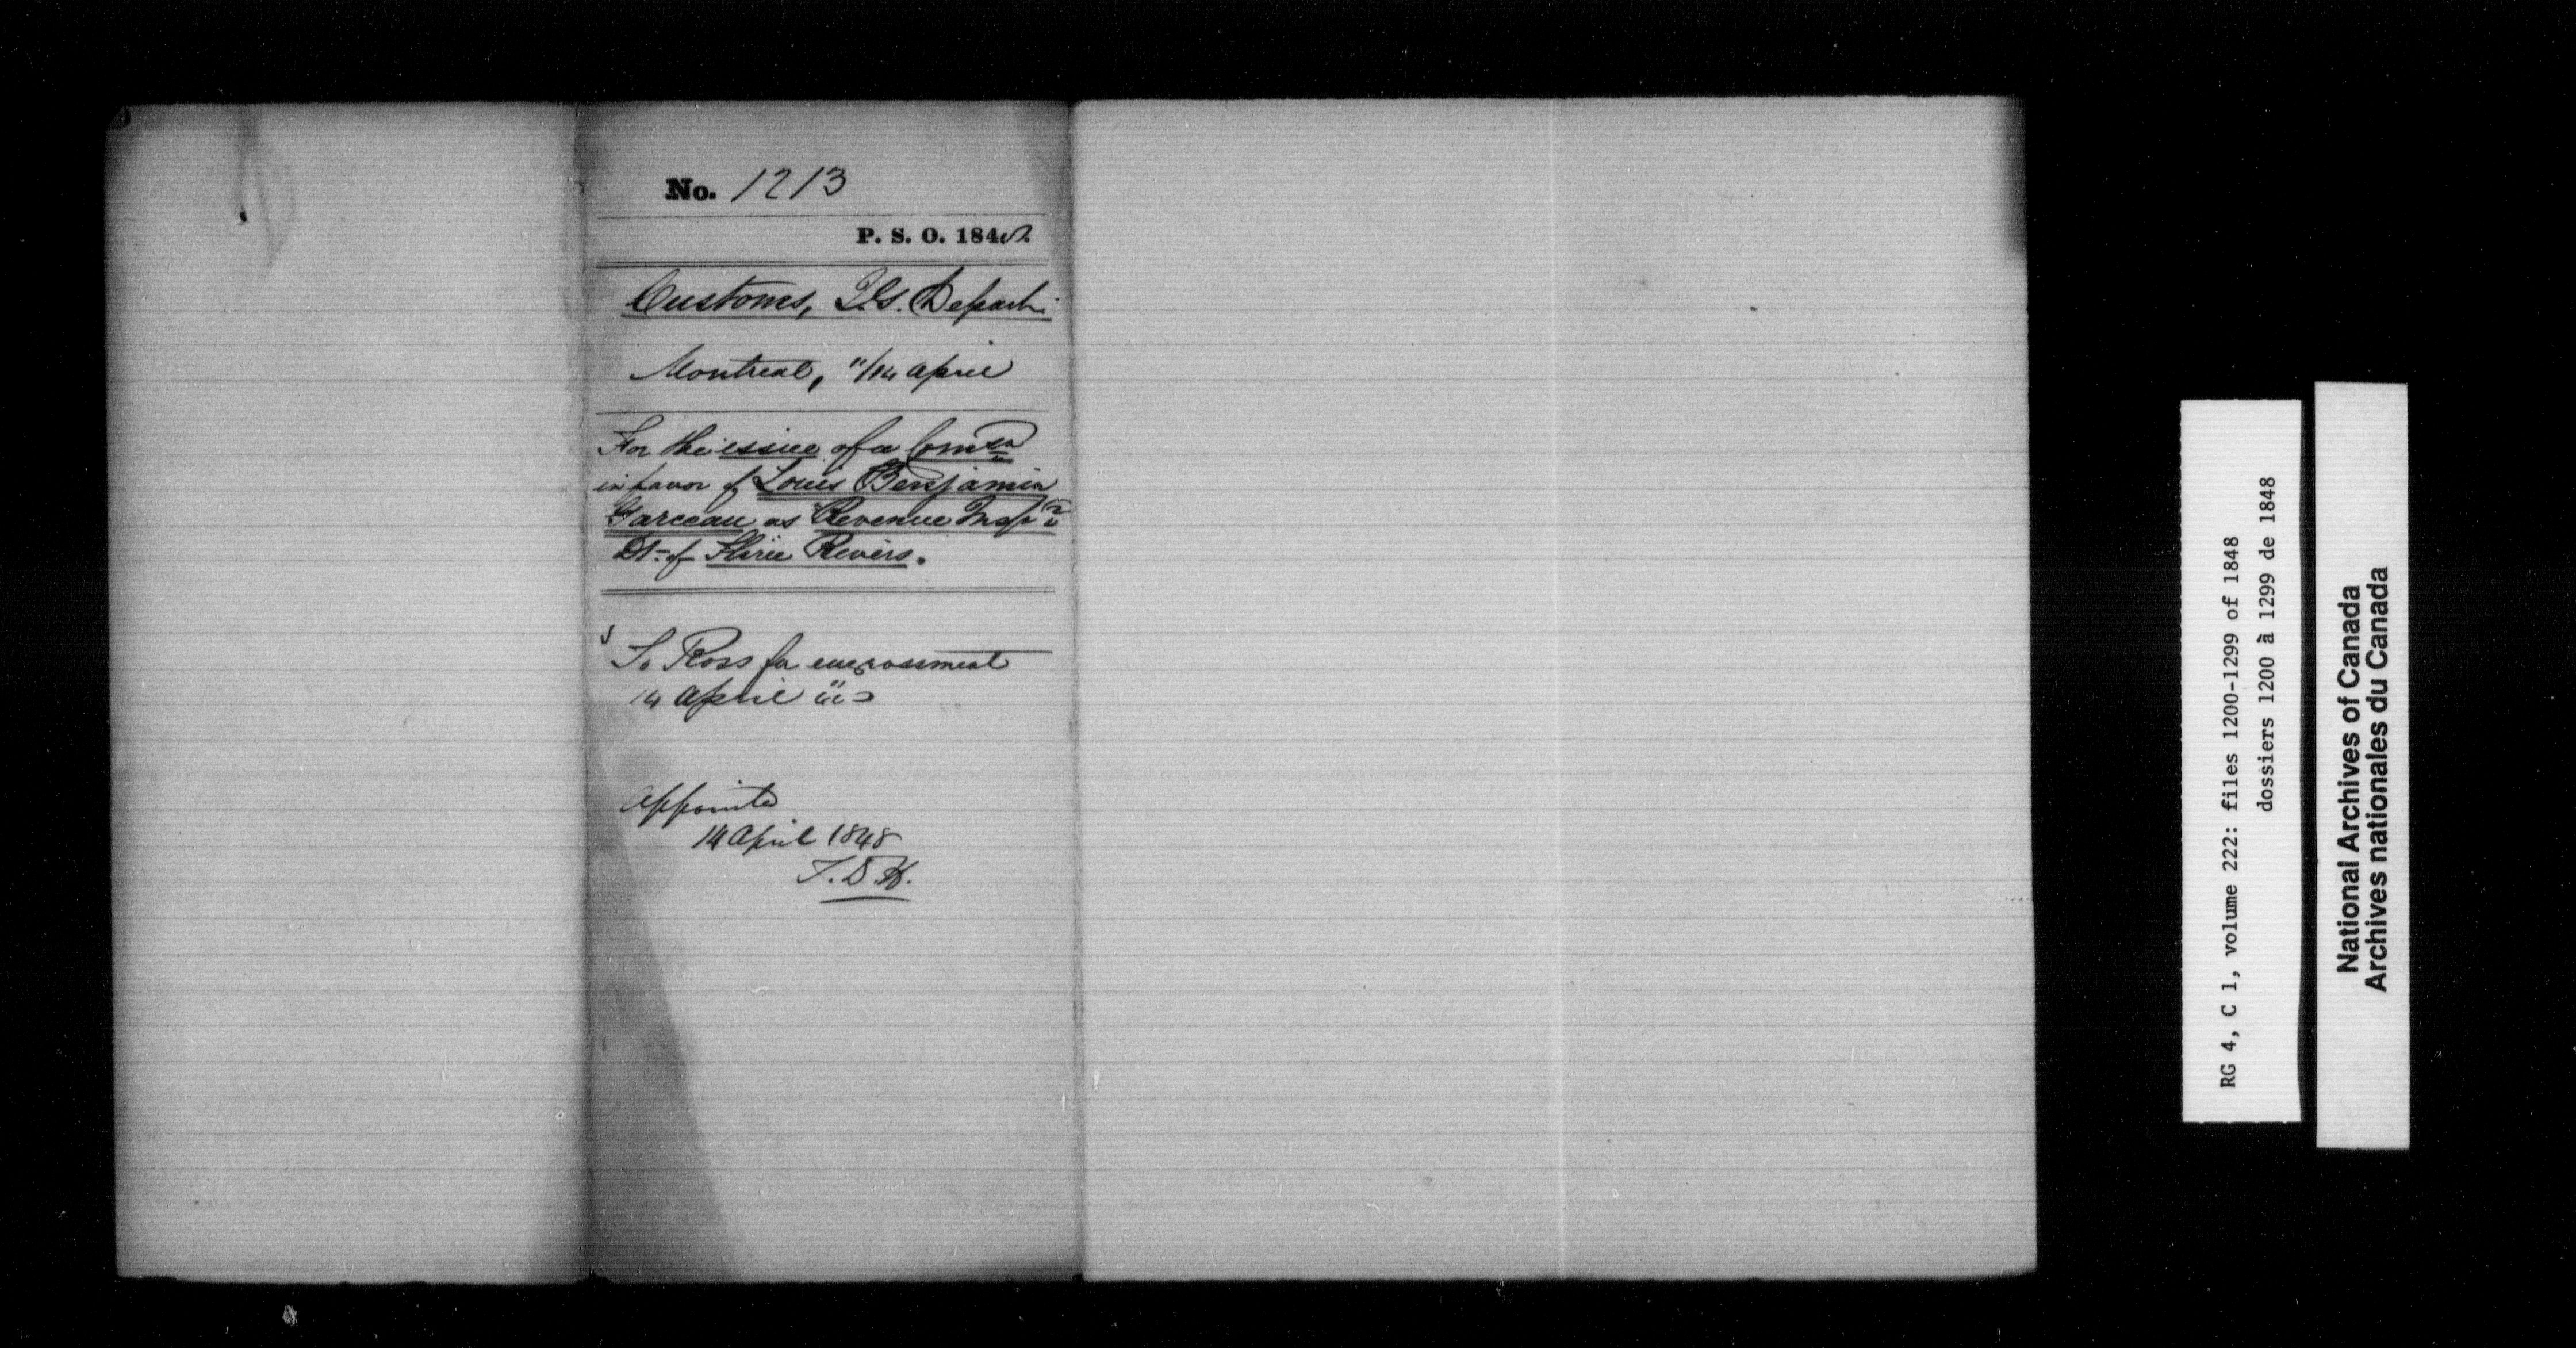 No. 1213
P. S. O. 1848.
Customs, Departt.
Montreal, 11/14 April
For the issue of a Comsn
in favor of Louis Benjamin
Garceau as Revenue Inspr
Dt. of Three Rivers.
To Ross for engrossment
14 April
Appointed
14 April 1848
T. D. H.
RG 4, C 1, volume 222: files 1200-1299 of 1848
dossiers 1200 à 1299 de 1848
National Archives of Canada
Archives nationales du Canada